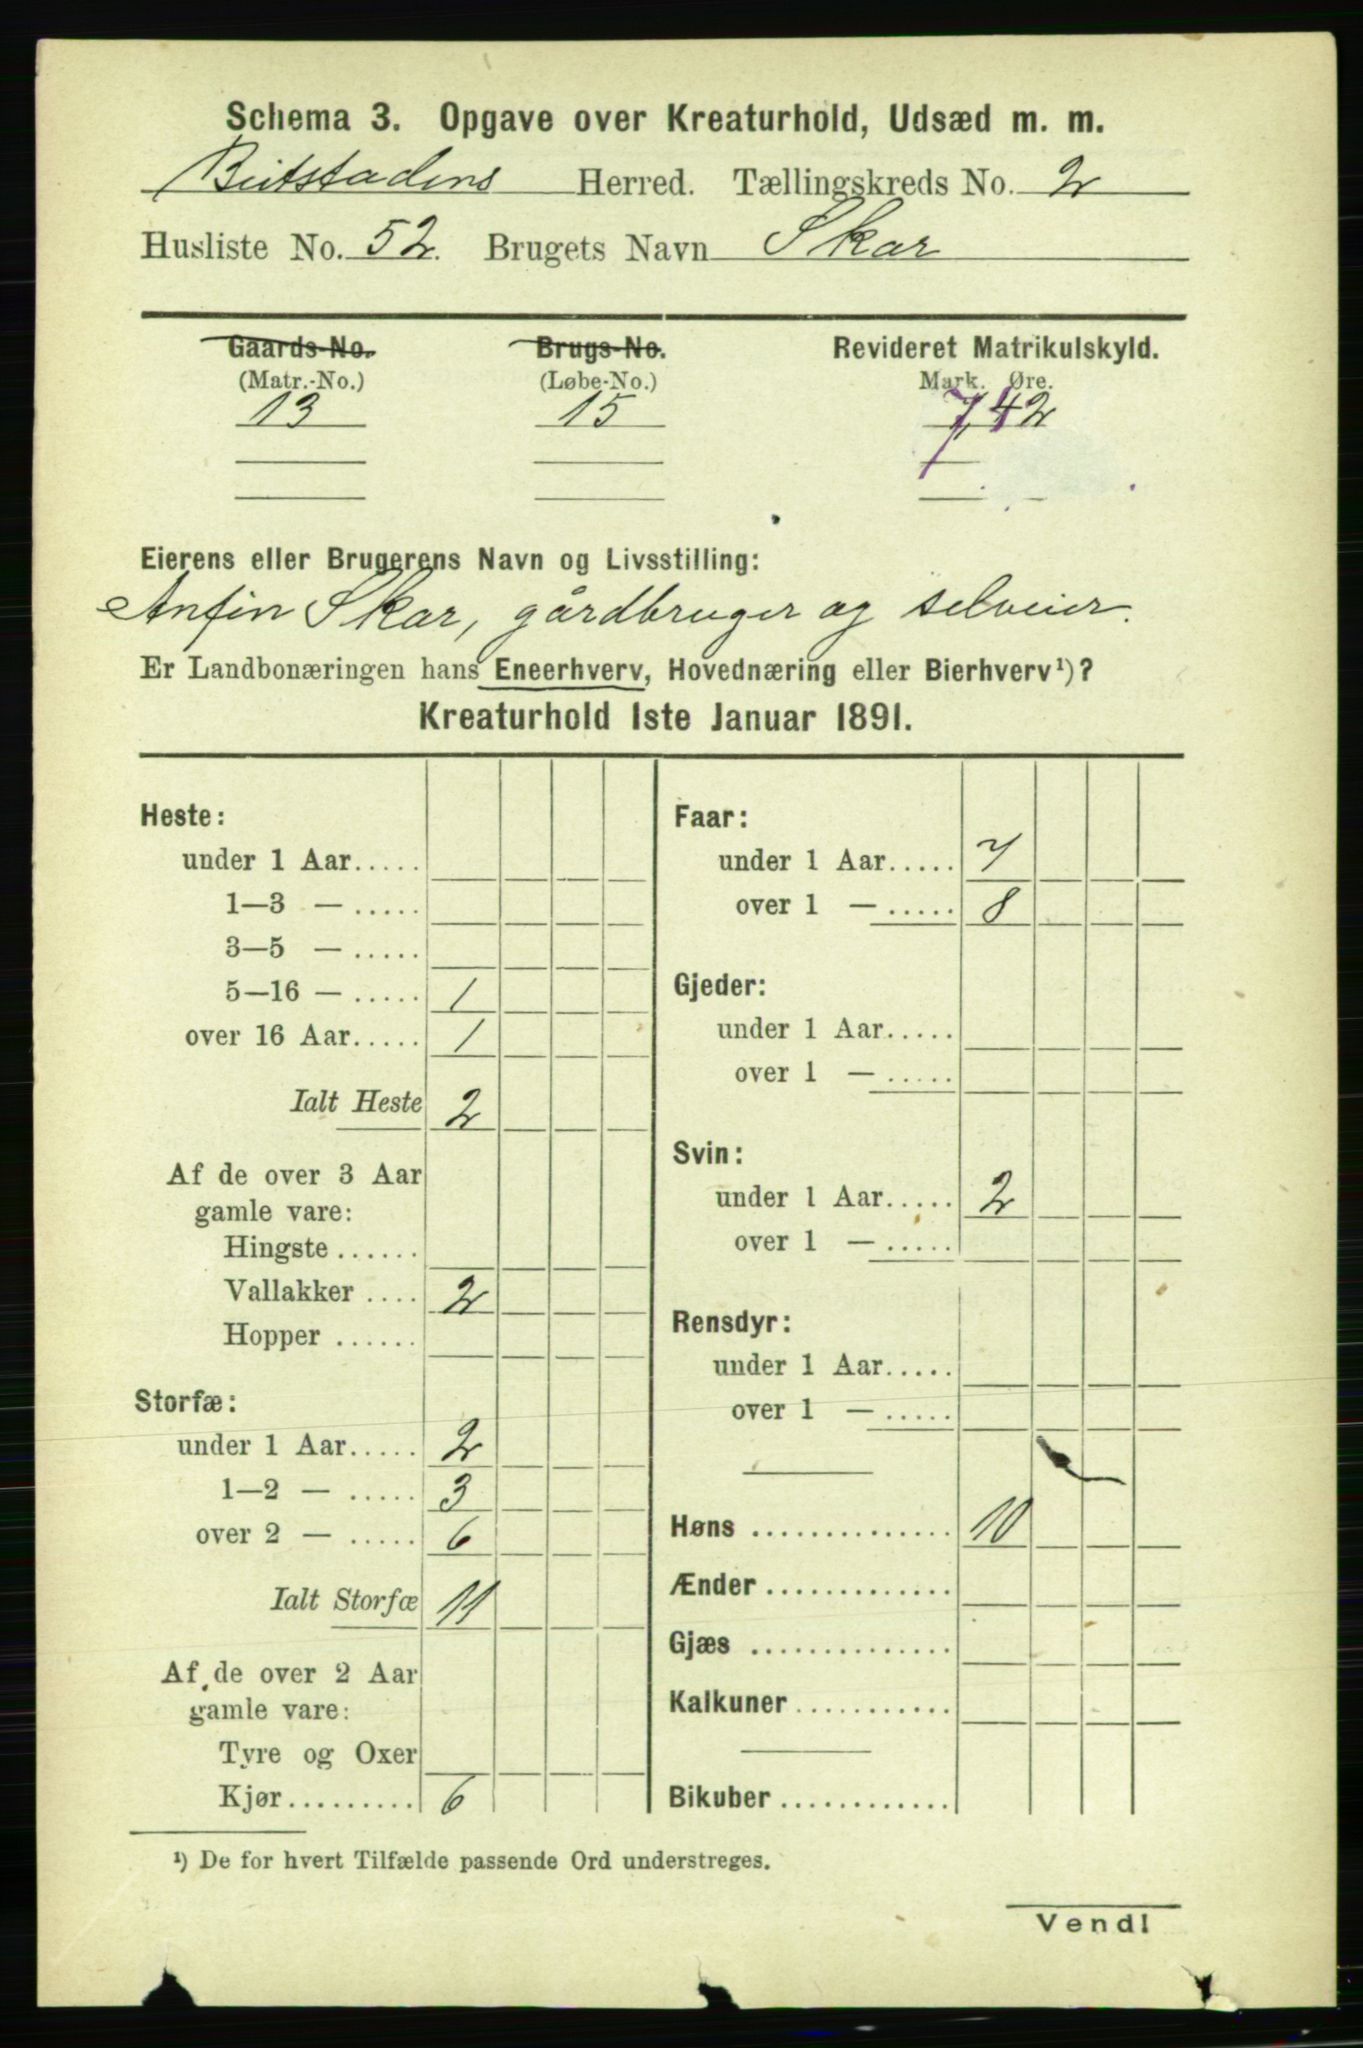 Schema 3. Opgave over Kreaturhold, Udsæd m. m.
Beitstadens Herred. Tællingskreds No. 2
Husliste No. 52. Brugets Navn Skar
Gaards-No. Brugs-No. Revideret Matrikulskyld.
(Matr.-No.) (Løbe-No.) Mark. Øre.
13 15 7,42
Eierens eller Brugerens Navn og Livsstilling:
Anfin Skar, gårdbruger og selveier.
Er Landbonæringen hans Eneerhverv, Hovednæring eller Bierhverv¹)?
Kreaturhold 1ste Januar 1891.
Heste:
under 1 Aar.....
1—3 — .....
3—5 — .....
5—16 — ..... 1
over 16 Aar..... 1
Ialt Heste 2
Af de over 3 Aar
gamle vare:
Hingste ......
Vallakker .... 2
Hopper ......
Storfæ:
under 1 Aar..... 2
1—2 — ..... 3
over 2 — ..... 6
Ialt Storfæ 11
Af de over 2 Aar
gamle vare:
Tyre og Oxer
Kjør......... 6
Faar:
under 1 Aar..... 7
over 1 — ..... 8
Gjeder:
under 1 Aar.....
over 1 — .....
Svin:
under 1 Aar..... 2
over 1 — .....
Rensdyr:
under 1 Aar.....
over 1 — .....
Høns .............. 10
Ænder .............
Gjæs ..............
Kalkuner ...........
Bikuber ............
¹) De for hvert Tilfælde passende Ord understreges.
Vend!